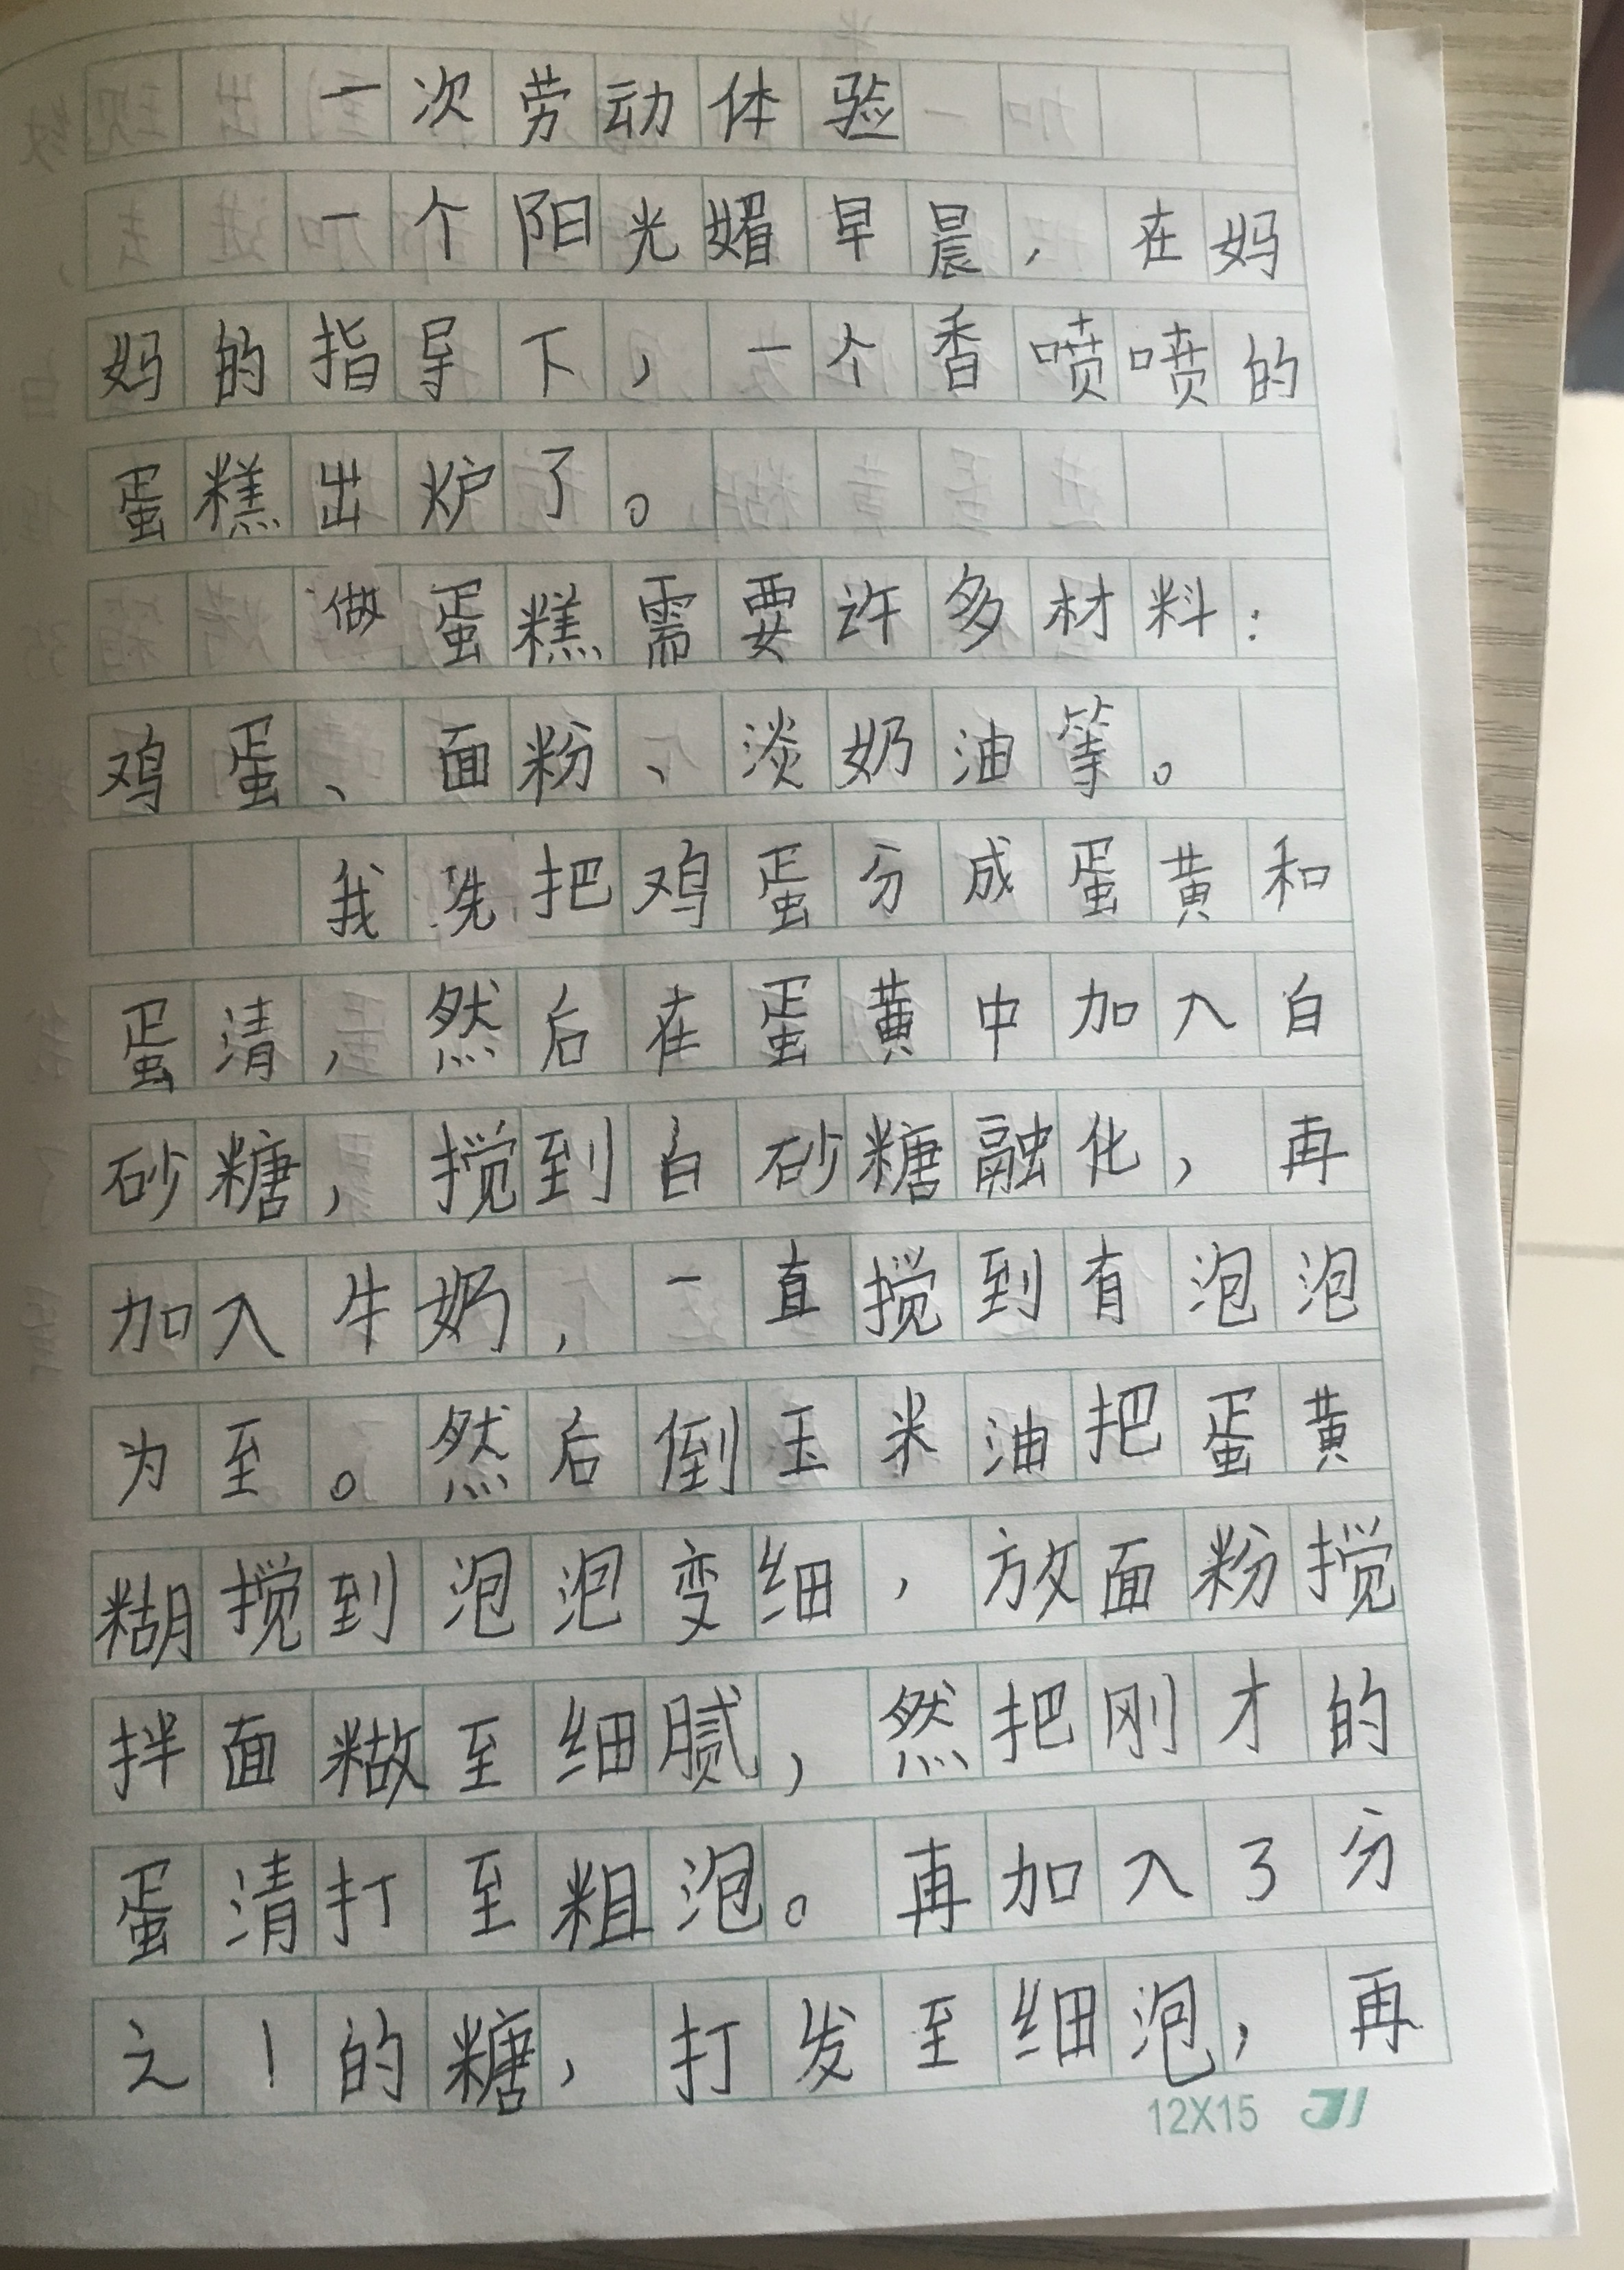 一次劳动体验
一个阳光媚早晨，在妈
妈的指导下，一个香喷喷的
蛋糕出炉了。
做蛋糕需要许多材料：
鸡蛋、面粉、淡奶油等。
我洗把鸡蛋分成蛋黄和
蛋清，然后在蛋黄中加入白
砂糖，搅到白砂糖融化，再
加入牛奶，一直搅到有泡泡
为至。然后倒玉米油把蛋黄
糊搅到泡泡变细，放面粉搅
拌面糊至细腻，然把刚才的
蛋清打至粗泡。再加入3分
之1的糖，打发至细泡，再
12X15